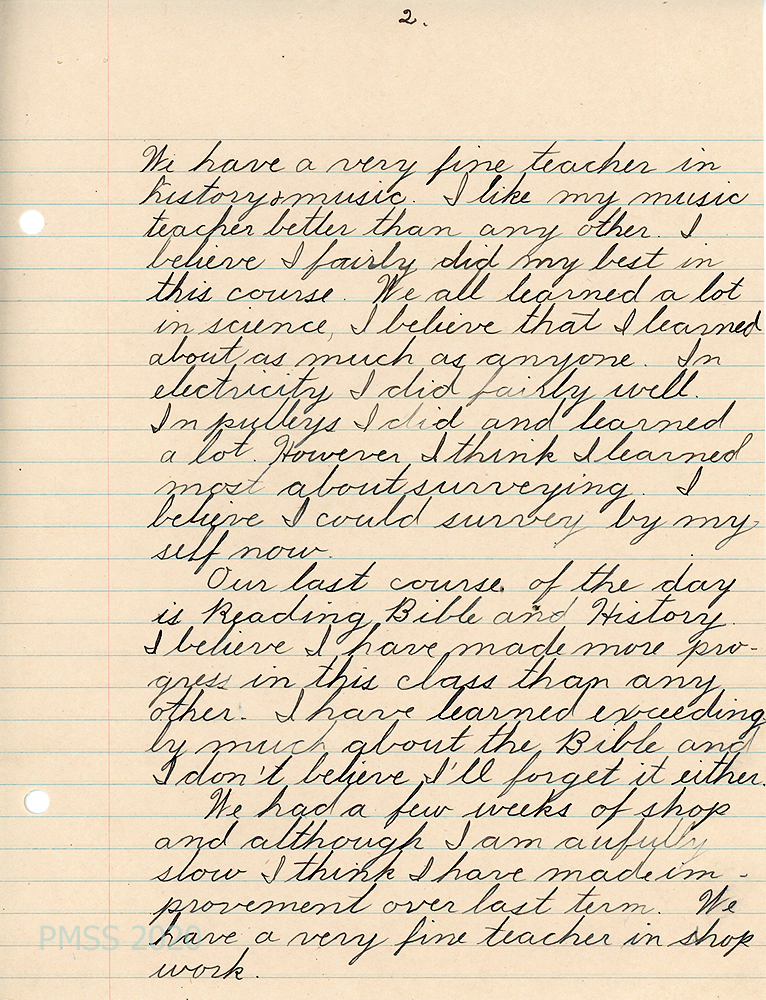 2.
We have a very fine teacher in
history & music. I like my music
teacher better than any other. I
believe I fairly did my best in
this course. We all learned a lot
in science, I believe that I learned
about as much as anyone. In
electricity I did fairly well.
In pulleys I did and learned
a lot. However I think I learned
most about surveying. I
believe I could survey by my
self now.
Our last course of the day
is Reading Bible and History.
I believe I have made more pro-
gress in this class than any
other. I have learned exceeding
ly much about the Bible and
I don't believe I'll forget it either.
We had a few weeks of shop
and although I am aufully
slow I think I have made im-
provement over last term. We
have a very fine teacher in shop
work.
PMSS 2020